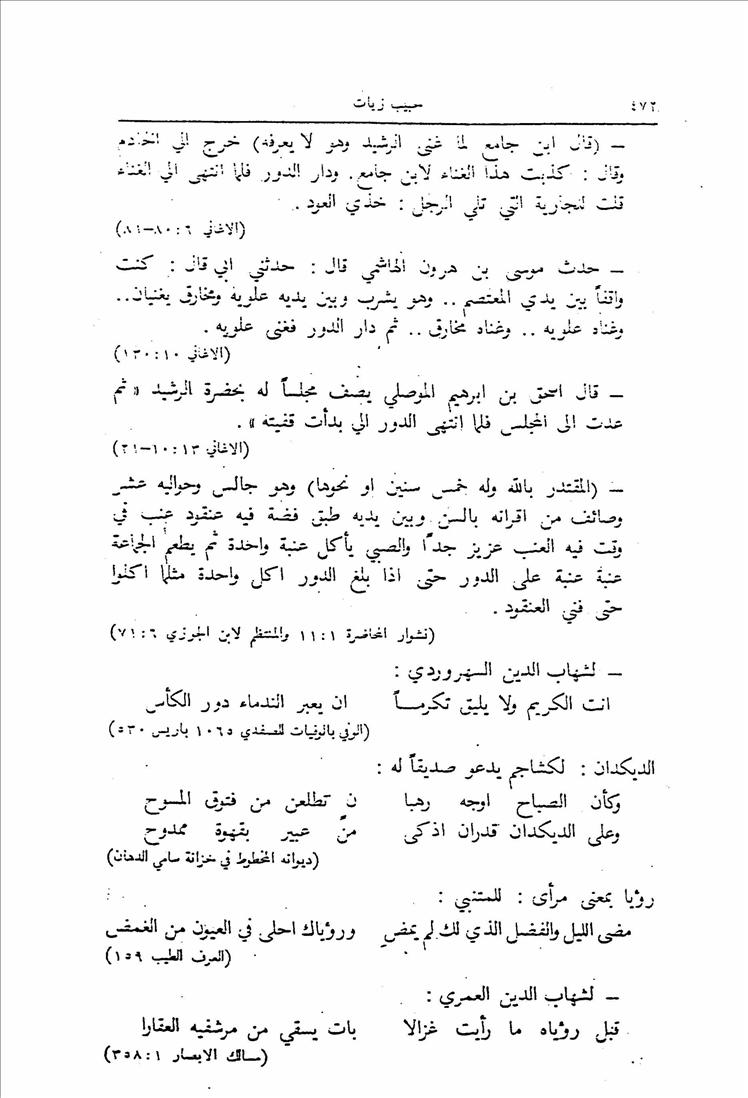 ٤٧٢ حبيب زيات
— (قال ابن جامع لما غنى الرشيد وهو لا يعرفه) خرج الي الخادم
وقال : كذبت هذا الغناء لابن جامع . ودار الدور فلما انتهى الي الغناء
قلت للجارية التي تلي الرجل : خذي العود .
(الاغاني ٦ : ٨٠-٨١)
— حدث موسى بن هرون الهاشمي قال : حدثني ابي قال : كنت
واقفاً بين يدي المعتصم .. وهو يشرب وبين يديه علويه ومخارق يغنيان..
وغناه علويه .. وغناه مخارق .. ثم دار الدور فغنى علويه .
(الاغاني ١٠ : ١٣٠)
— قال اسحق بن ابرهيم الموصلي يصف مجلساً له بحضرة الرشيد « ثم
عدت الى المجلس فلما انتهى الدور الي بدأت قغنيته » .
(الاغاني ١٣ : ١٠-٢١)
— (المقتدر بالله وله خمس سنين او نحوها) وهو جالس وحواليه عشر
وصائف من اقرانه بالسن وبين يديه طبق فضة فيه عنقود عنب في
وقت فيه العنب عزيز جداً والصبي يأكل عنبة واحدة ثم يطعم الجماعة
عنبة عنبة على الدور حتى اذا بلغ الدور اكل واحدة مثلما اكلوا
حتى فني العنقود .
(نشوار المحاضرة ١ : ١١ والمنتظم لابن الجوزي ٦ : ٧١)
— لشهاب الدين السهروردي :
انت الكريم ولا يليق تكرمـــاً ان يعبر الندماء دور الكأس
(الوفي بالوفيات للصفدي ١٠٦٥ باريس ٥٣٠)
الديكدان : لكشاجم يدعو صديقاً له :
وكأن الصباح اوجه رهبا ن تطلعن من فتوق المسوح
وعلى الديكدان قدران اذكى من عبير بقهوة ممدوح
(ديوانه المخطوط في خزانة سامي الدهان)
رؤيا بمعنى مرأى : للمتنبي :
مضى الليل والفضل الذي لك لم يمضِ ورؤياك احلى في العيون من الغمض
(العرف الطيب ١٥٩)
— لشهاب الدين العمري :
قبل رؤياه ما رأيت غزالا بات يسقي من مرشفيه العقارا
(مسالك الابصار ١ : ٣٥٨)